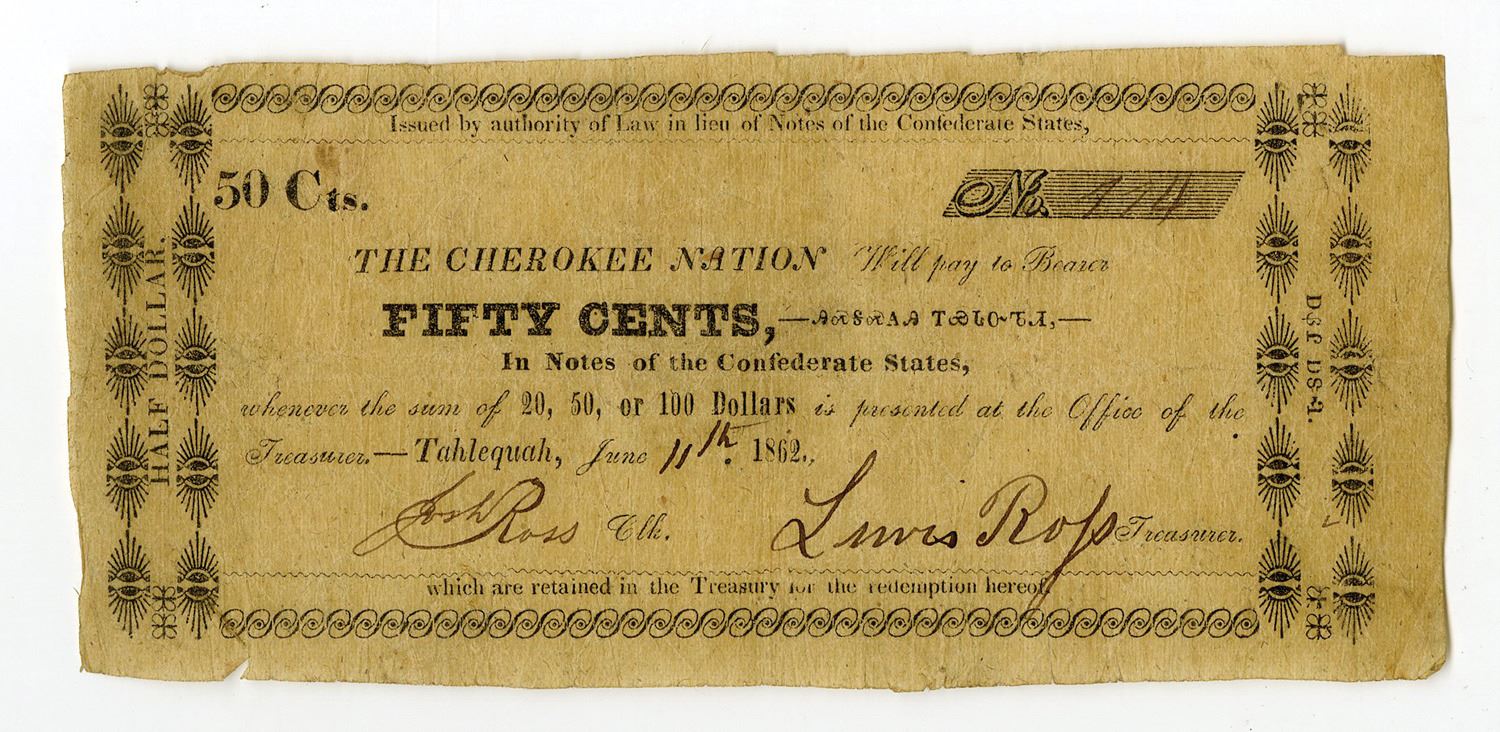 Issued by authority of Law in lieu of Notes of the Confederate States,
50 Cts.
No.
THE CHEROKEE NATION Will pay to Bearer
FIFTY CENTS,—ᎯᏍᎦᏍᎪᎯ ᎢᏯᏓᏅᏖᏗ,—
In Notes of the Confederate States,
whenever the sum of 20, 50, or 100 Dollars is presented at the Office of the
Treasurer.—Tahlequah, June 11th. 1862.
Josh Ross Clk. Lewis Ross Treasurer.
which are retained in the Treasury for the redemption hereof.
HALF DOLLAR.
ᎠᏰᎵ ᎠᏕᎸ.